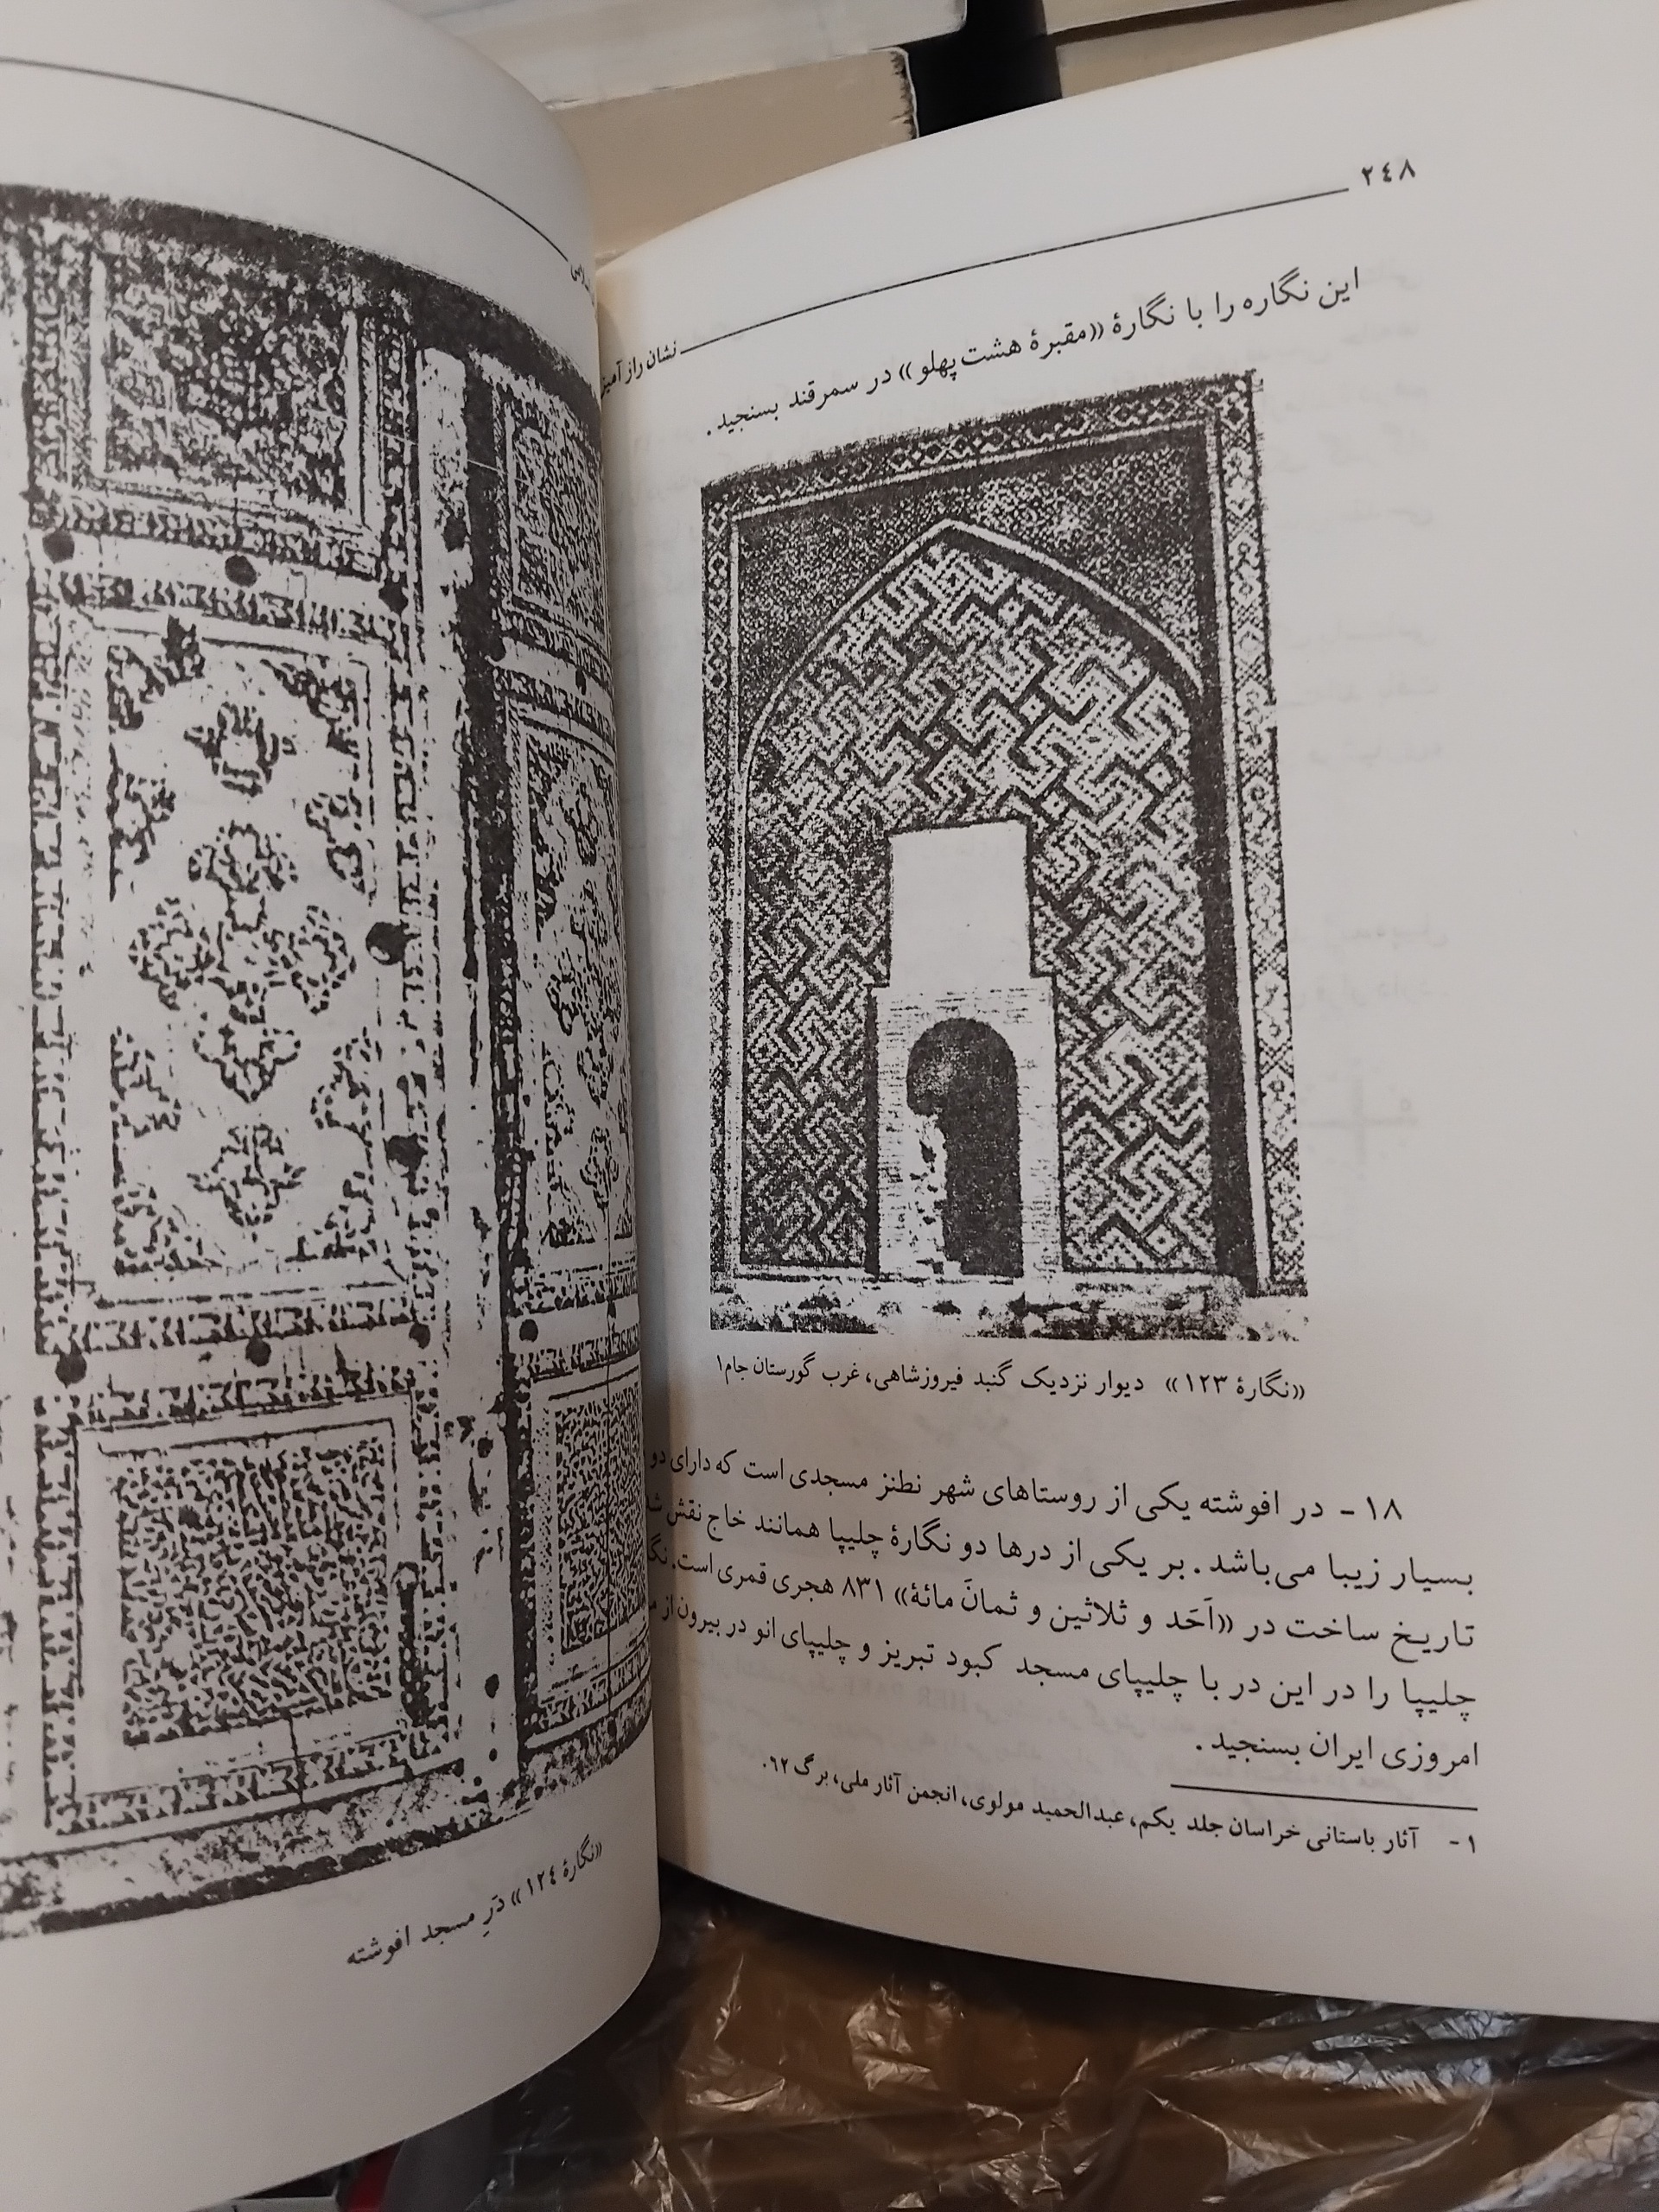 ۲٤۸
نشان رازآمیز
این نگاره را با نگارهٔ «مقبرهٔ هشت‌پهلو» در سمرقند بسنجید.
«نگارهٔ ۱۲۳» دیوار نزدیک گنبد فیروزشاهی، غرب گورستان جام۱
۱۸ - در افوشته یکی از روستاهای شهر نطنز مسجدی است که دارای دو
بسیار زیبا می‌باشد. بر یکی از درها دو نگارهٔ چلیپا همانند خاج نقش
تاریخ ساخت در «اَحَد و ثلاثین و ثمانَ مائة» ۸۳۱ هجری قمری است.
چلیپا را در این در با چلیپای مسجد کبود تبریز و چلیپای انو در بیرون از
امروزی ایران بسنجید.
۱ - آثار باستانی خراسان جلد یکم، عبدالحمید مولوی، انجمن آثار ملی، برگ ٦۲.
«نگارهٔ ۱۲٤» دَرِ مسجد افوشته